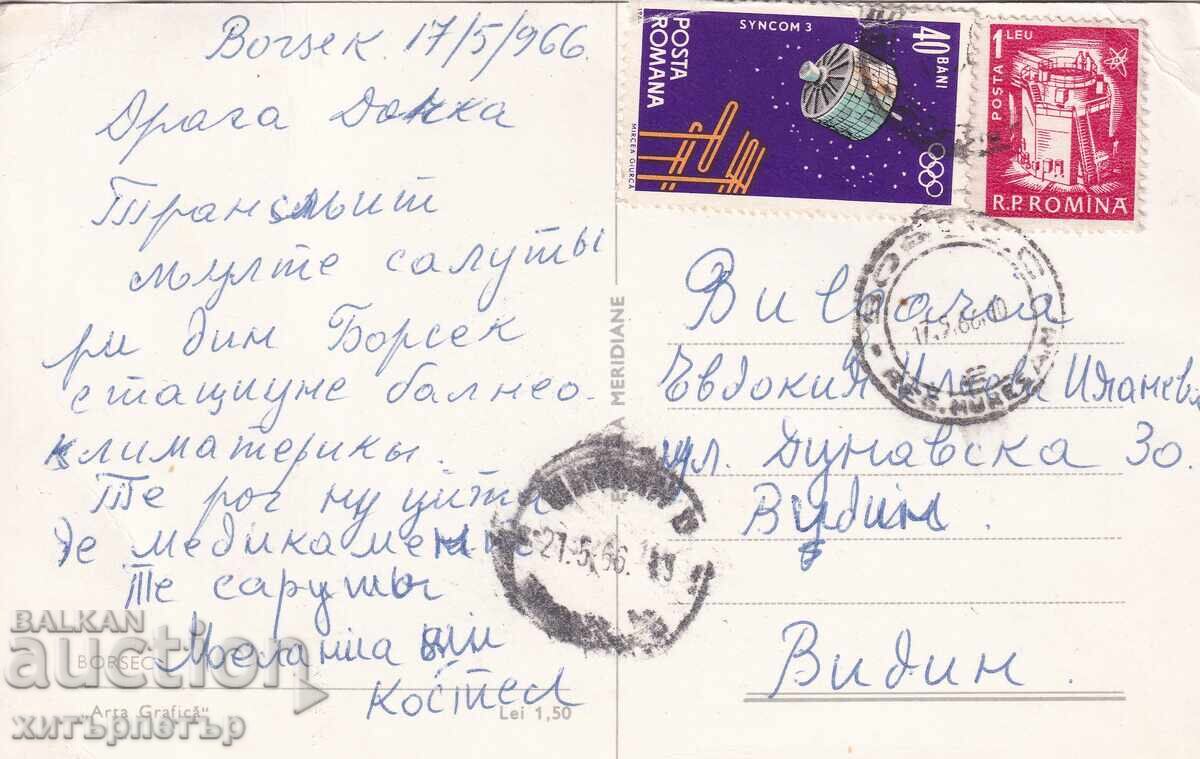 Borsek 17/5/966
Драга Донка
Трансмит
мулте салуты
ри дин Борсек
стациуне балнео-
климатерикы.
Те рог ну уита
де медикаменте
Те саруты
и
Костел
BORSEC
„Arta Grafică"
Lei 1,50
MERIDIANE
POSTA ROMANA
SYNCOM 3
40 BANI
MIRCEA GIURCĂ
POSTA 1 LEU
R.P.ROMINA
17.5.66.
MURES
27.5.66. 19
Евдокия Илиева
ул. Дунавска 30.
Видин.
Видин.
BALKAN
auction
хитърпетър